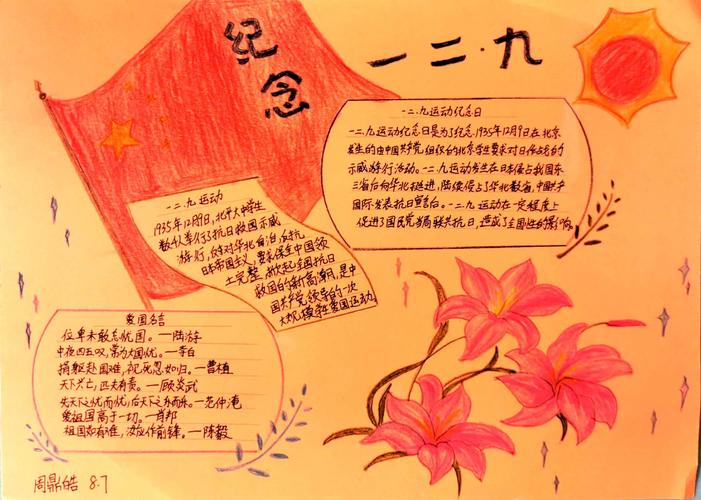 纪念
一二·九
一二·九运动纪念日
一二·九运动纪念日是为了纪念1935年12月9日在北京
发生的由中国共产党组织的北京学生要求对日侵占者的
示威游行活动。一二·九运动发生在日本侵占我国东
三省后向华北挺进,陆续侵占了华北数省,中国共产
国际发表抗日宣言后。一二·九运动在一定程度上
促进了国民党当局联共抗日,造成了全国性的影响。
一二·九运动
1935年12月9日,北平大中学生
数千人举行了抗日救国示威
游行,反对华北自治,反抗
日本帝国主义,要求保全中国领
土完整,掀起全国抗日
救国的新高潮,是中
国共产党领导的一次
大规模学生爱国运动。
爱国名言
位卑未敢忘忧国。—陆游
中夜四五叹,常为大国忧。—李白
捐躯赴国难,视死忽如归。—曹植
天下兴亡,匹夫有责。—顾炎武
先天下之忧而忧,后天下之乐而乐。—范仲淹
爱祖国高于一切。—肖邦
祖国如有难,汝应作前锋。—陈毅
周鼎皓 8.7